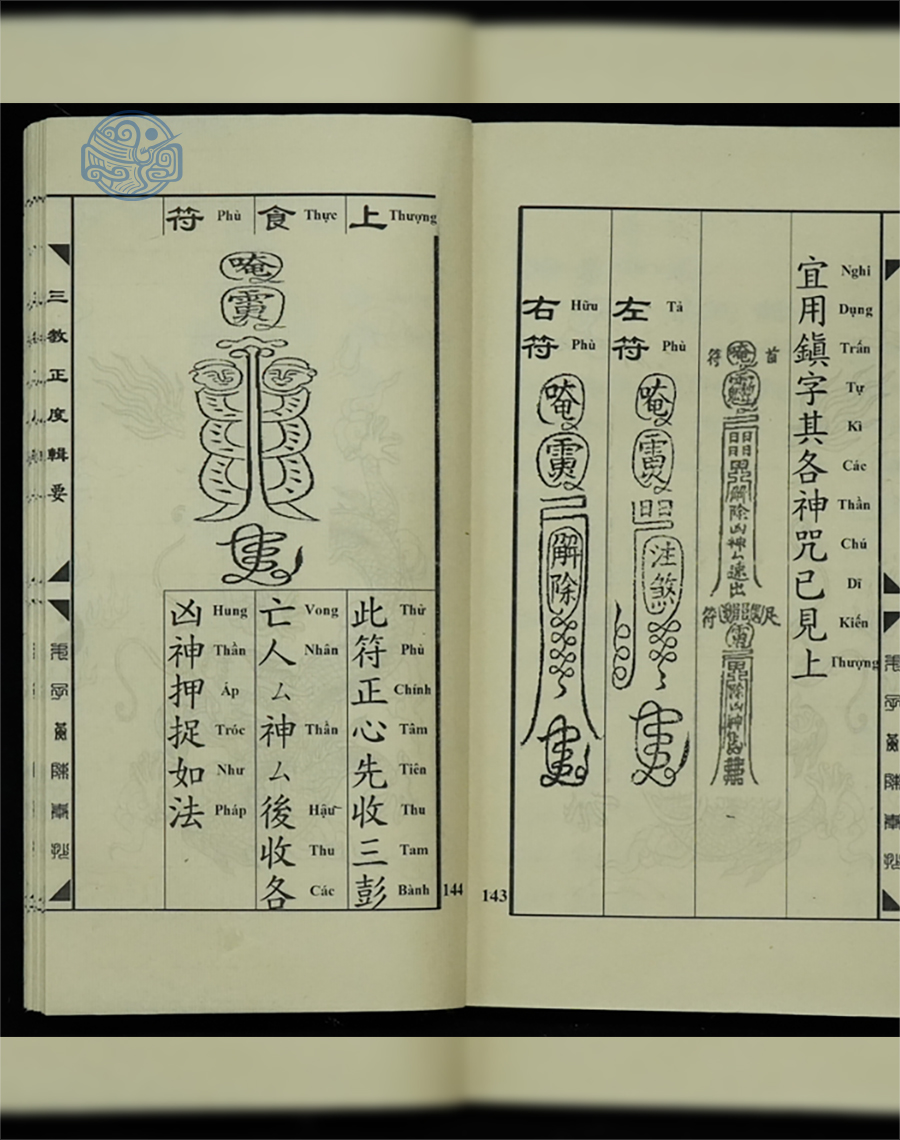 宜用鎮字其各神咒已見上
Nghi Dụng Trấn Tự Kì Các Thần Chú Dĩ Kiến Thượng
首符
解除凶神厶速出
符
左符
Tả Phù
唵
注煞
右符
Hữu Phù
唵
解除
143
上
Thượng
食
Thực
符
Phù
唵
此符正心先收三彭
Thử Phù Chính Tâm Tiên Thu Tam Bành
亡人厶神厶後收各
Vong Nhân Thần Hậu Thu Các
凶神押捉如法
Hung Thần Áp Tróc Như Pháp
144
三教正度輯要